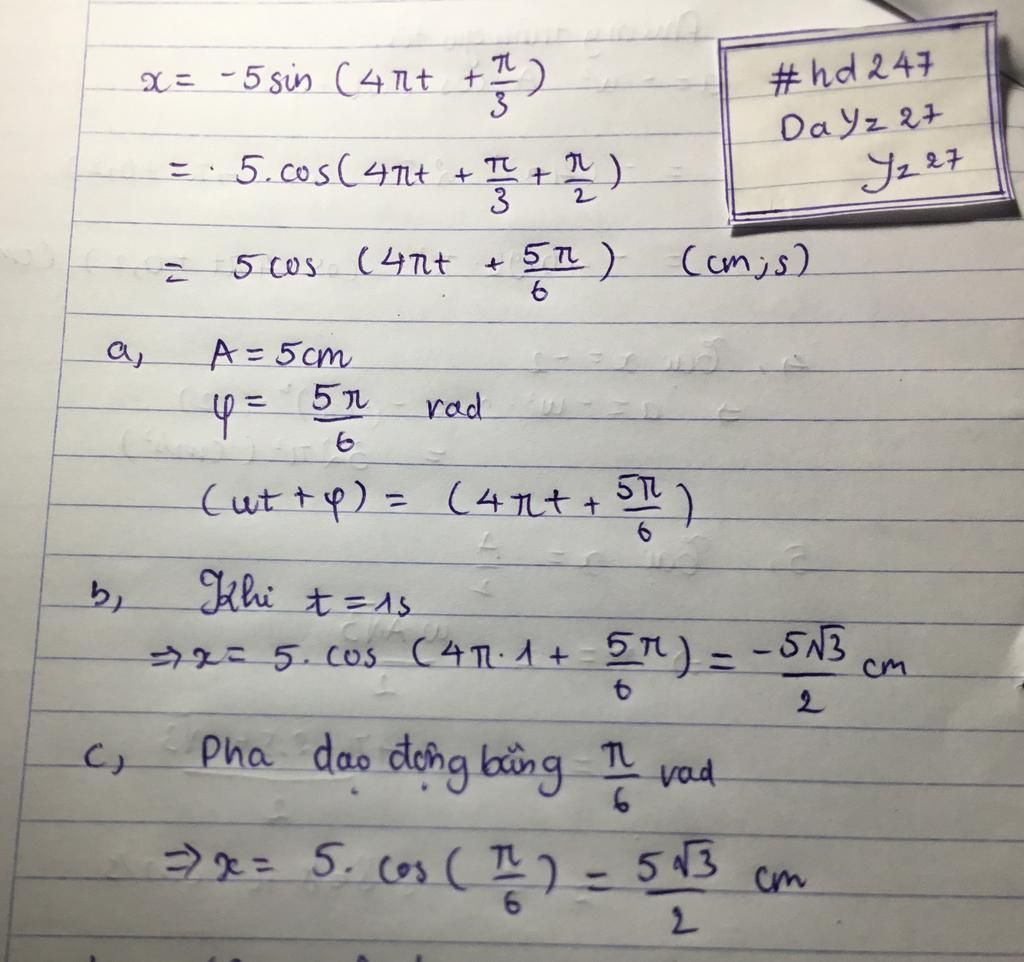 x = -5 sin (4πt + π/3)
= 5.cos(4πt + π/3 + π/2)
= 5 cos (4πt + 5π/6) (cm;s)
#hd247
DaYz27
Yz27
a, A = 5cm
φ = 5π/6 rad
(ωt + φ) = (4πt + 5π/6)
b, Khi t = 1s
⇒ x = 5. cos (4π.1 + 5π/6) = -5√3/2 cm
c, Pha dao động bằng π/6 rad
⇒ x = 5. cos (π/6) = 5√3/2 cm